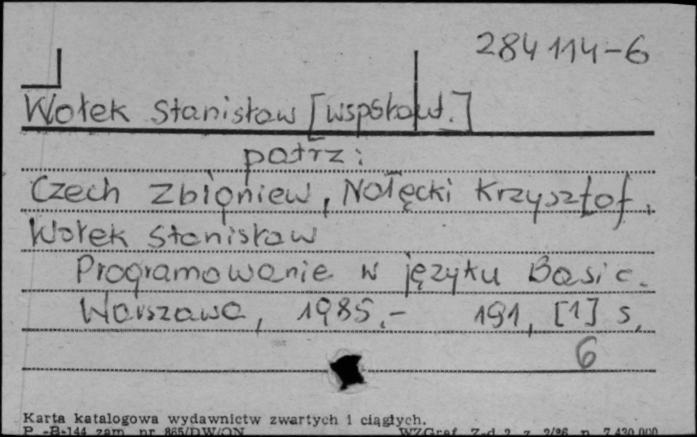 284114-6
Wołek Stanisław [współaut.]
patrz:
Czech Zbigniew, Nałęcki Krzysztof,
Wołek Stanisław
Programowanie w języku Basic.
Warszawa, 1985.- 191, [1] s.
6
Karta katalogowa wydawnictw zwartych i ciągłych.
P -B-144 zam. nr 865/DW/ON WZGraf. Z-d 2 z. 2/86 n. 7.430.000